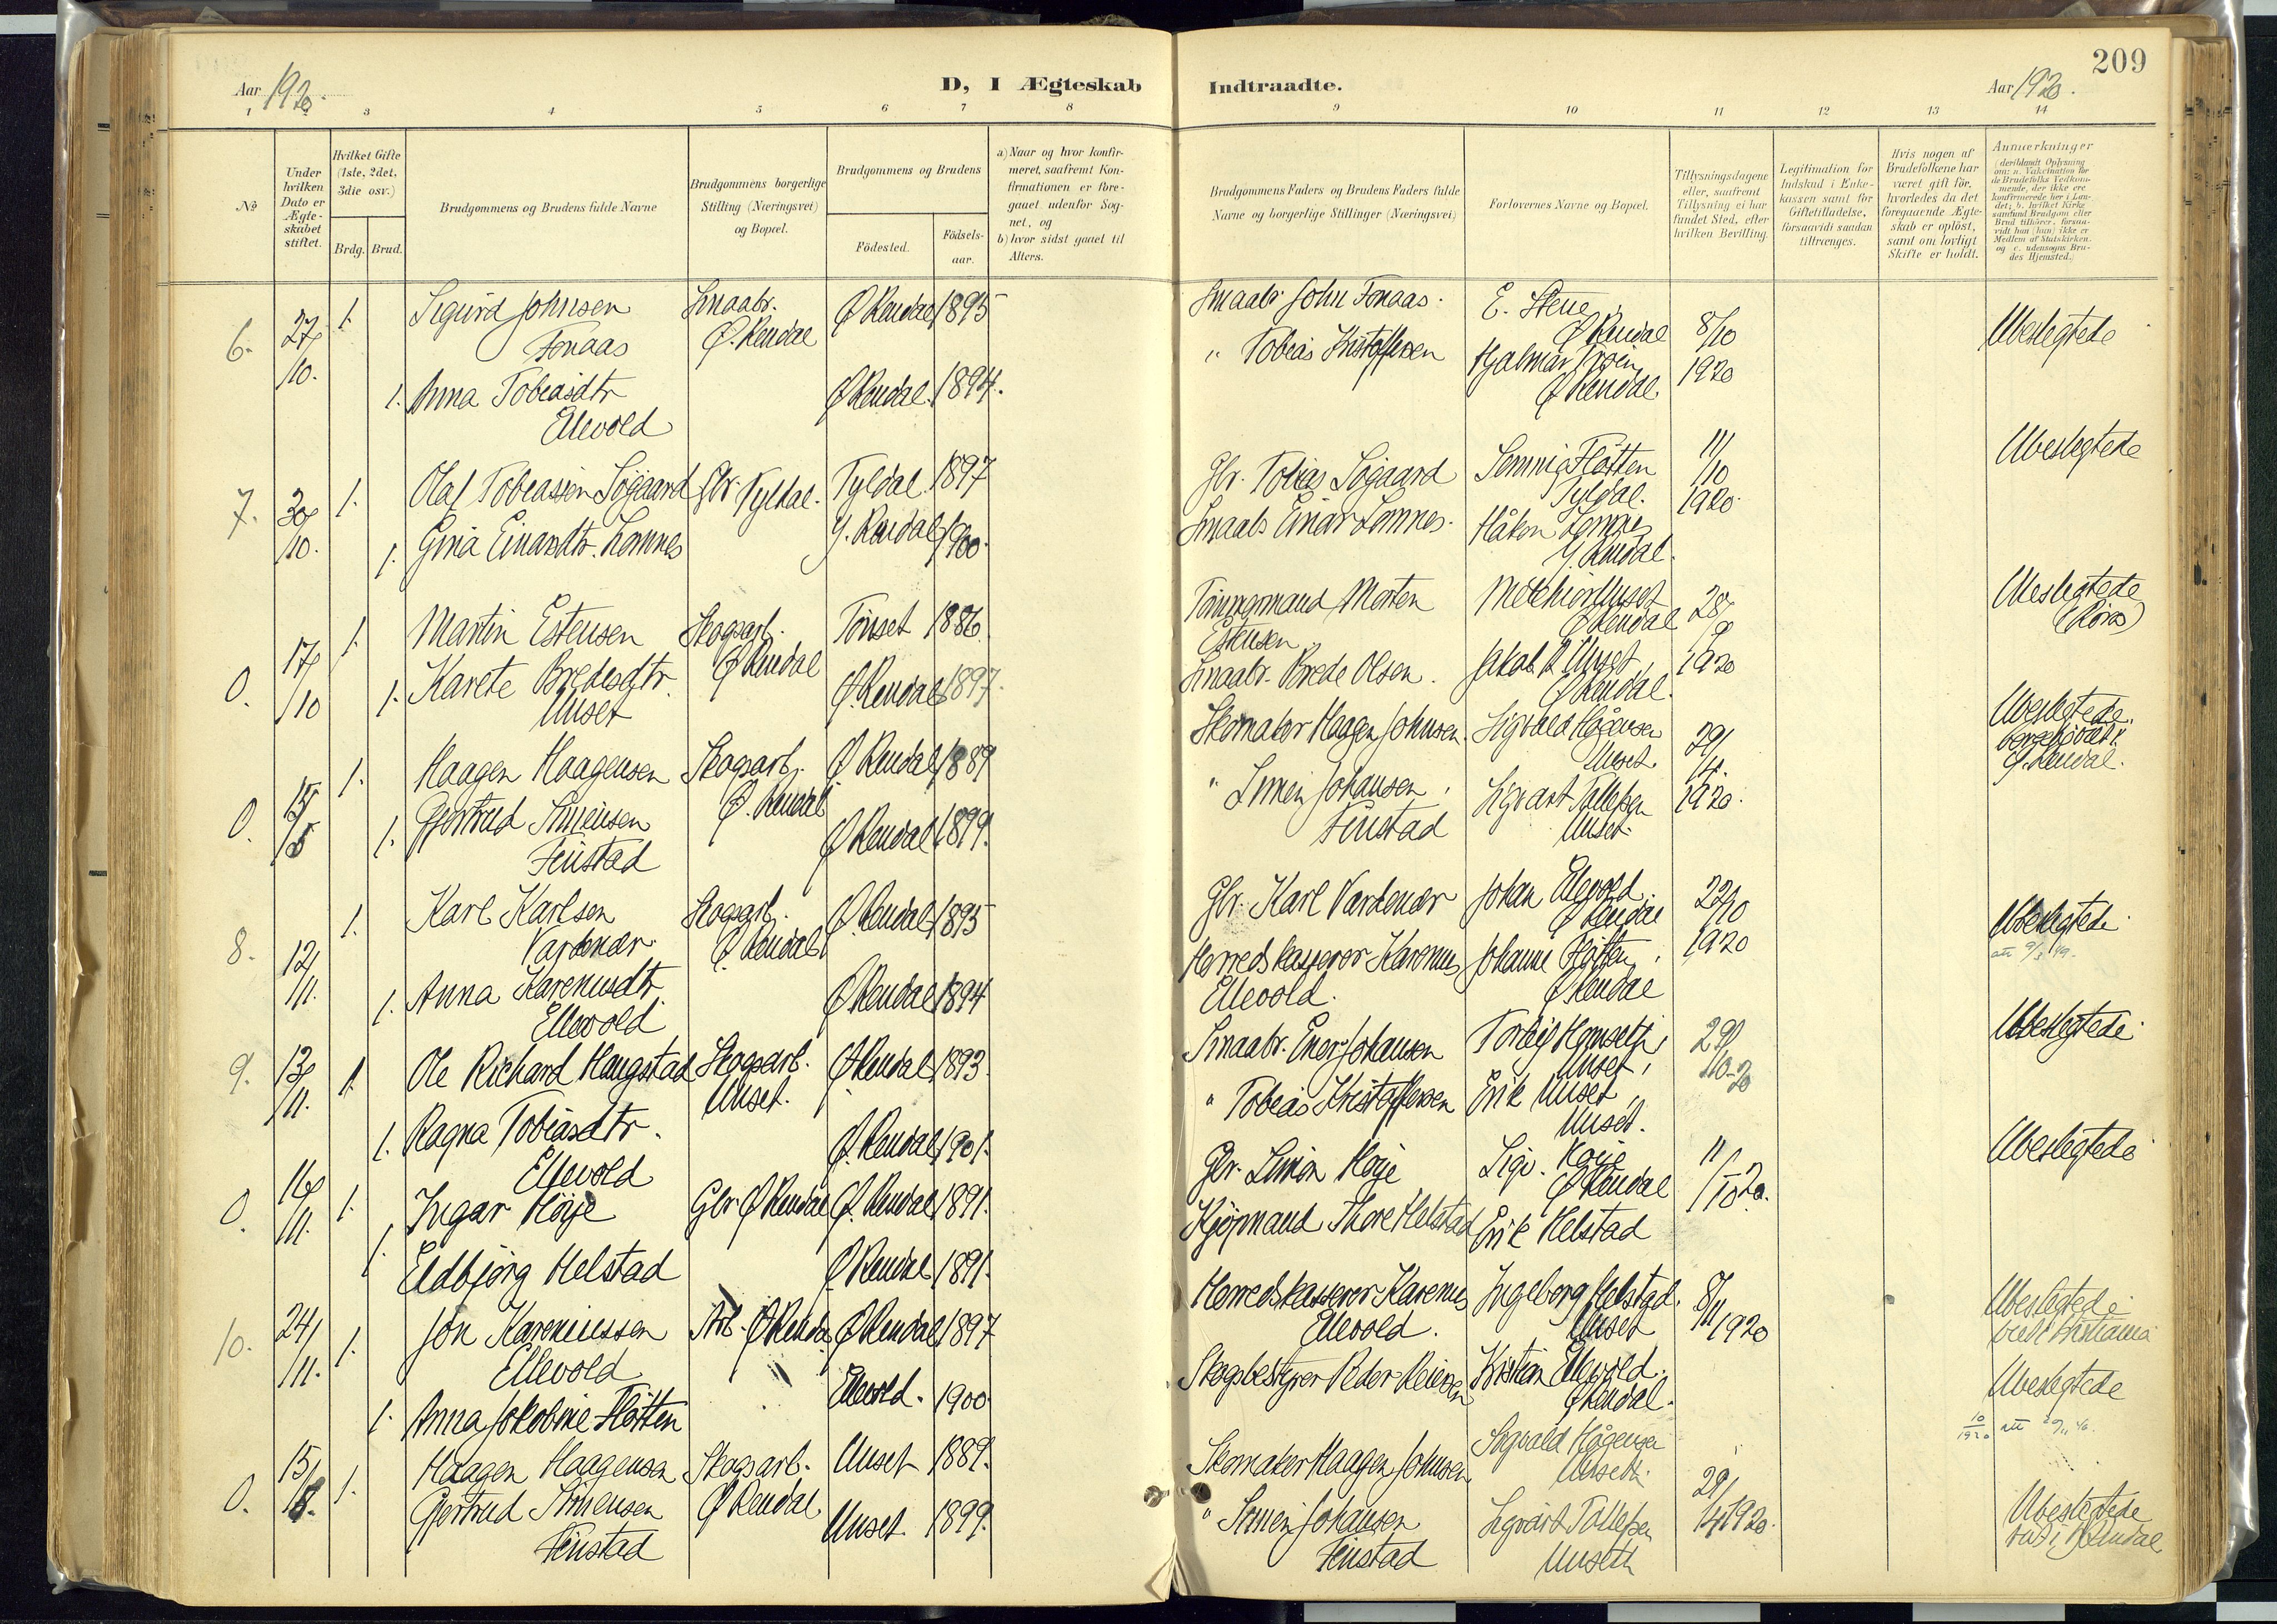 209
Aar 1920.
D, I Ægteskab
Indtraadte.
Aar 1920.
1 2 3 4 5 6 7 8
9 10 11 12 13 14
No
Under hvilken Dato er Ægteskabet stiftet.
Hvilket Gifte (1ste, 2det, 3die osv.)
Brdg. Brud.
Brudgommens og Brudens fulde Navne
Brudgommens borgerlige Stilling (Næringsvei) og Bopæl.
Brudgommens og Brudens
Födested.
Födsels-aar.
a) Naar og hvor konfir-
meret, saafremt Kon-
firmationen er fore-
gaaet udenfor Sog-
net, og
b) hvor sidst gaaet til
Alters.
Brudgommens Faders og Brudens Faders fulde
Navne og borgerlige Stillinger (Næringsvei)
Forlovernes Navne og Bopæl.
Tillysningsdagene
eller, saafremt
Tillysning ei har
fundet Sted, efter
hvilken Bevilling.
Legitimation for
Indskud i Enke-
kassen samt for
Giftetilladelse,
forsaavidt saadan
tiltrænges.
Hvis nogen af
Brudefolkene har
været gift før,
hvorledes da det
foregaaende Ægte-
skab er oplöst,
samt om lovligt
Skifte er holdt.
Anmærkninger
(deriblandt Oplysning
om: a. Vakcination for
de Brudefolks Vedkom-
mende, der ikke ere
konfirmerede her i Lan-
det; b. hvilket Kirke-
samfund Brudgom eller
Brud tilhører, forsaa-
vidt han (hun) ikke er
Medlem af Statskirken,
og c. udensogns Bru-
des Hjemsted.)
6. 27/10. 1. Sigurd Johnsen Smaabr. Ø Rendal 1895
Fonaas Ø. Rendal
1. Anna Tobiasdtr Ø Rendal. 1894.
Ellevold
Smaabr John Fonaas. E. Stene
Ø Rendal 8/10
" Tobias Kristoffersen Hjalmar
Ø Rendal. 1920
Ubeslegtede
7. 30/10. 1. Olaf Tobiassen Søgaard Gbr. Tyldal. Tyldal. 1897
1. Gina Einarsdtr. Lomnes Y. Rendal 1900.
Gbr. Tobias Søgaard Fløtten
Tyldal. 11/10 1920.
Smaabr Einar Lomnes. Håkon Lomnes
Y. Rendal.
Ubeslegtede
0. 17/10 1. Martin Estensen Skogsarb. Tönset 1886
Ø Rendal
1. Karete Bredesdtr. Ø. Rendal 1897.
Unset
Morten Melkior Unset
Estensen Ø Rendal 28/9
Smaabr. Brede Olsen. Jakob R Unset,
Ø Rendal. 1920
Ubeslegtede
(Röros)
0. 15/5 1. Haagen Haagensen Skogsarb. Ø Rendal 1889
Ø. Rendal
1. Gjertrud Simensen Ø Rendal 1899.
Finstad
Skomaker Haagen Johnsen. Sigvald Hågensen
Unset. 29/4.
" Simen Johansen, Sigvart Tollefsen
Finstad Unset. 1920.
Ubeslegtede.
Y. Rendal.
8. 12/11. 1. Karl Karlsen Skogsarb. Ø. Rendal 1895
Vardenær Ø. Rendal
1. Anna Karenusdtr. Ø Rendal 1894
Ellevold
Gbr. Karl Vardenær Johan Ellevold.
Ø Rendal 22/10
Herredskasserer Karenus Johanne Fløtten,
Ellevold. Ø Rendal 1920
Ubeslegtede
9. 13/11. 1. Ole Richard Haugstad Skogsarb. Ø Rendal 1893.
Unset.
1. Ragna Tobiasdtr. Ø. Rendal 1901.
Ellevold
Smaabr. Johansen Torleif
Unset, 29/10-20
" Tobias Kristoffersen Erik Unset,
Unset.
Ubeslegtede
0. 16/11. 1. Ingar Høye Gbr Ø Rendal Ø. Rendal 1891.
1. Eldbjørg Helstad Ø Rendal 1891.
Gbr. Simen Høye Sigv. Høye
Ø Rendal 11/10 20.
Kjøpmand Thore Helstad Erik Helstad
Ubeslegtede
10. 24/11. 1. Jon Kareniussen Arb. Ø Rendal Ø Rendal 1897
Ellevold
1. Anna Jakobine Fløtten Ellevold. 1900.
Herredskasserer Karenus Ingeborg Helstad.
Ellevold. Unset 8/11 1920
Skogsbestyrer Peder Reiersen Kristian Ellevold.
Ø Rendal.
Ubeslegtede
Ubeslegtede
0. 15/5. 1. Haagen Haagensen Skogsarb. Unset 1889.
Gjertrud Simensen Ø Rendal. Unset. 1899.
Finstad
Skomaker Haagen Johnsen Sigvald Hågensen
Unset. 29/4 1920.
" Simen Johansen Sigvart Tollefsen
Finstad Unseth
Ubeslegtede